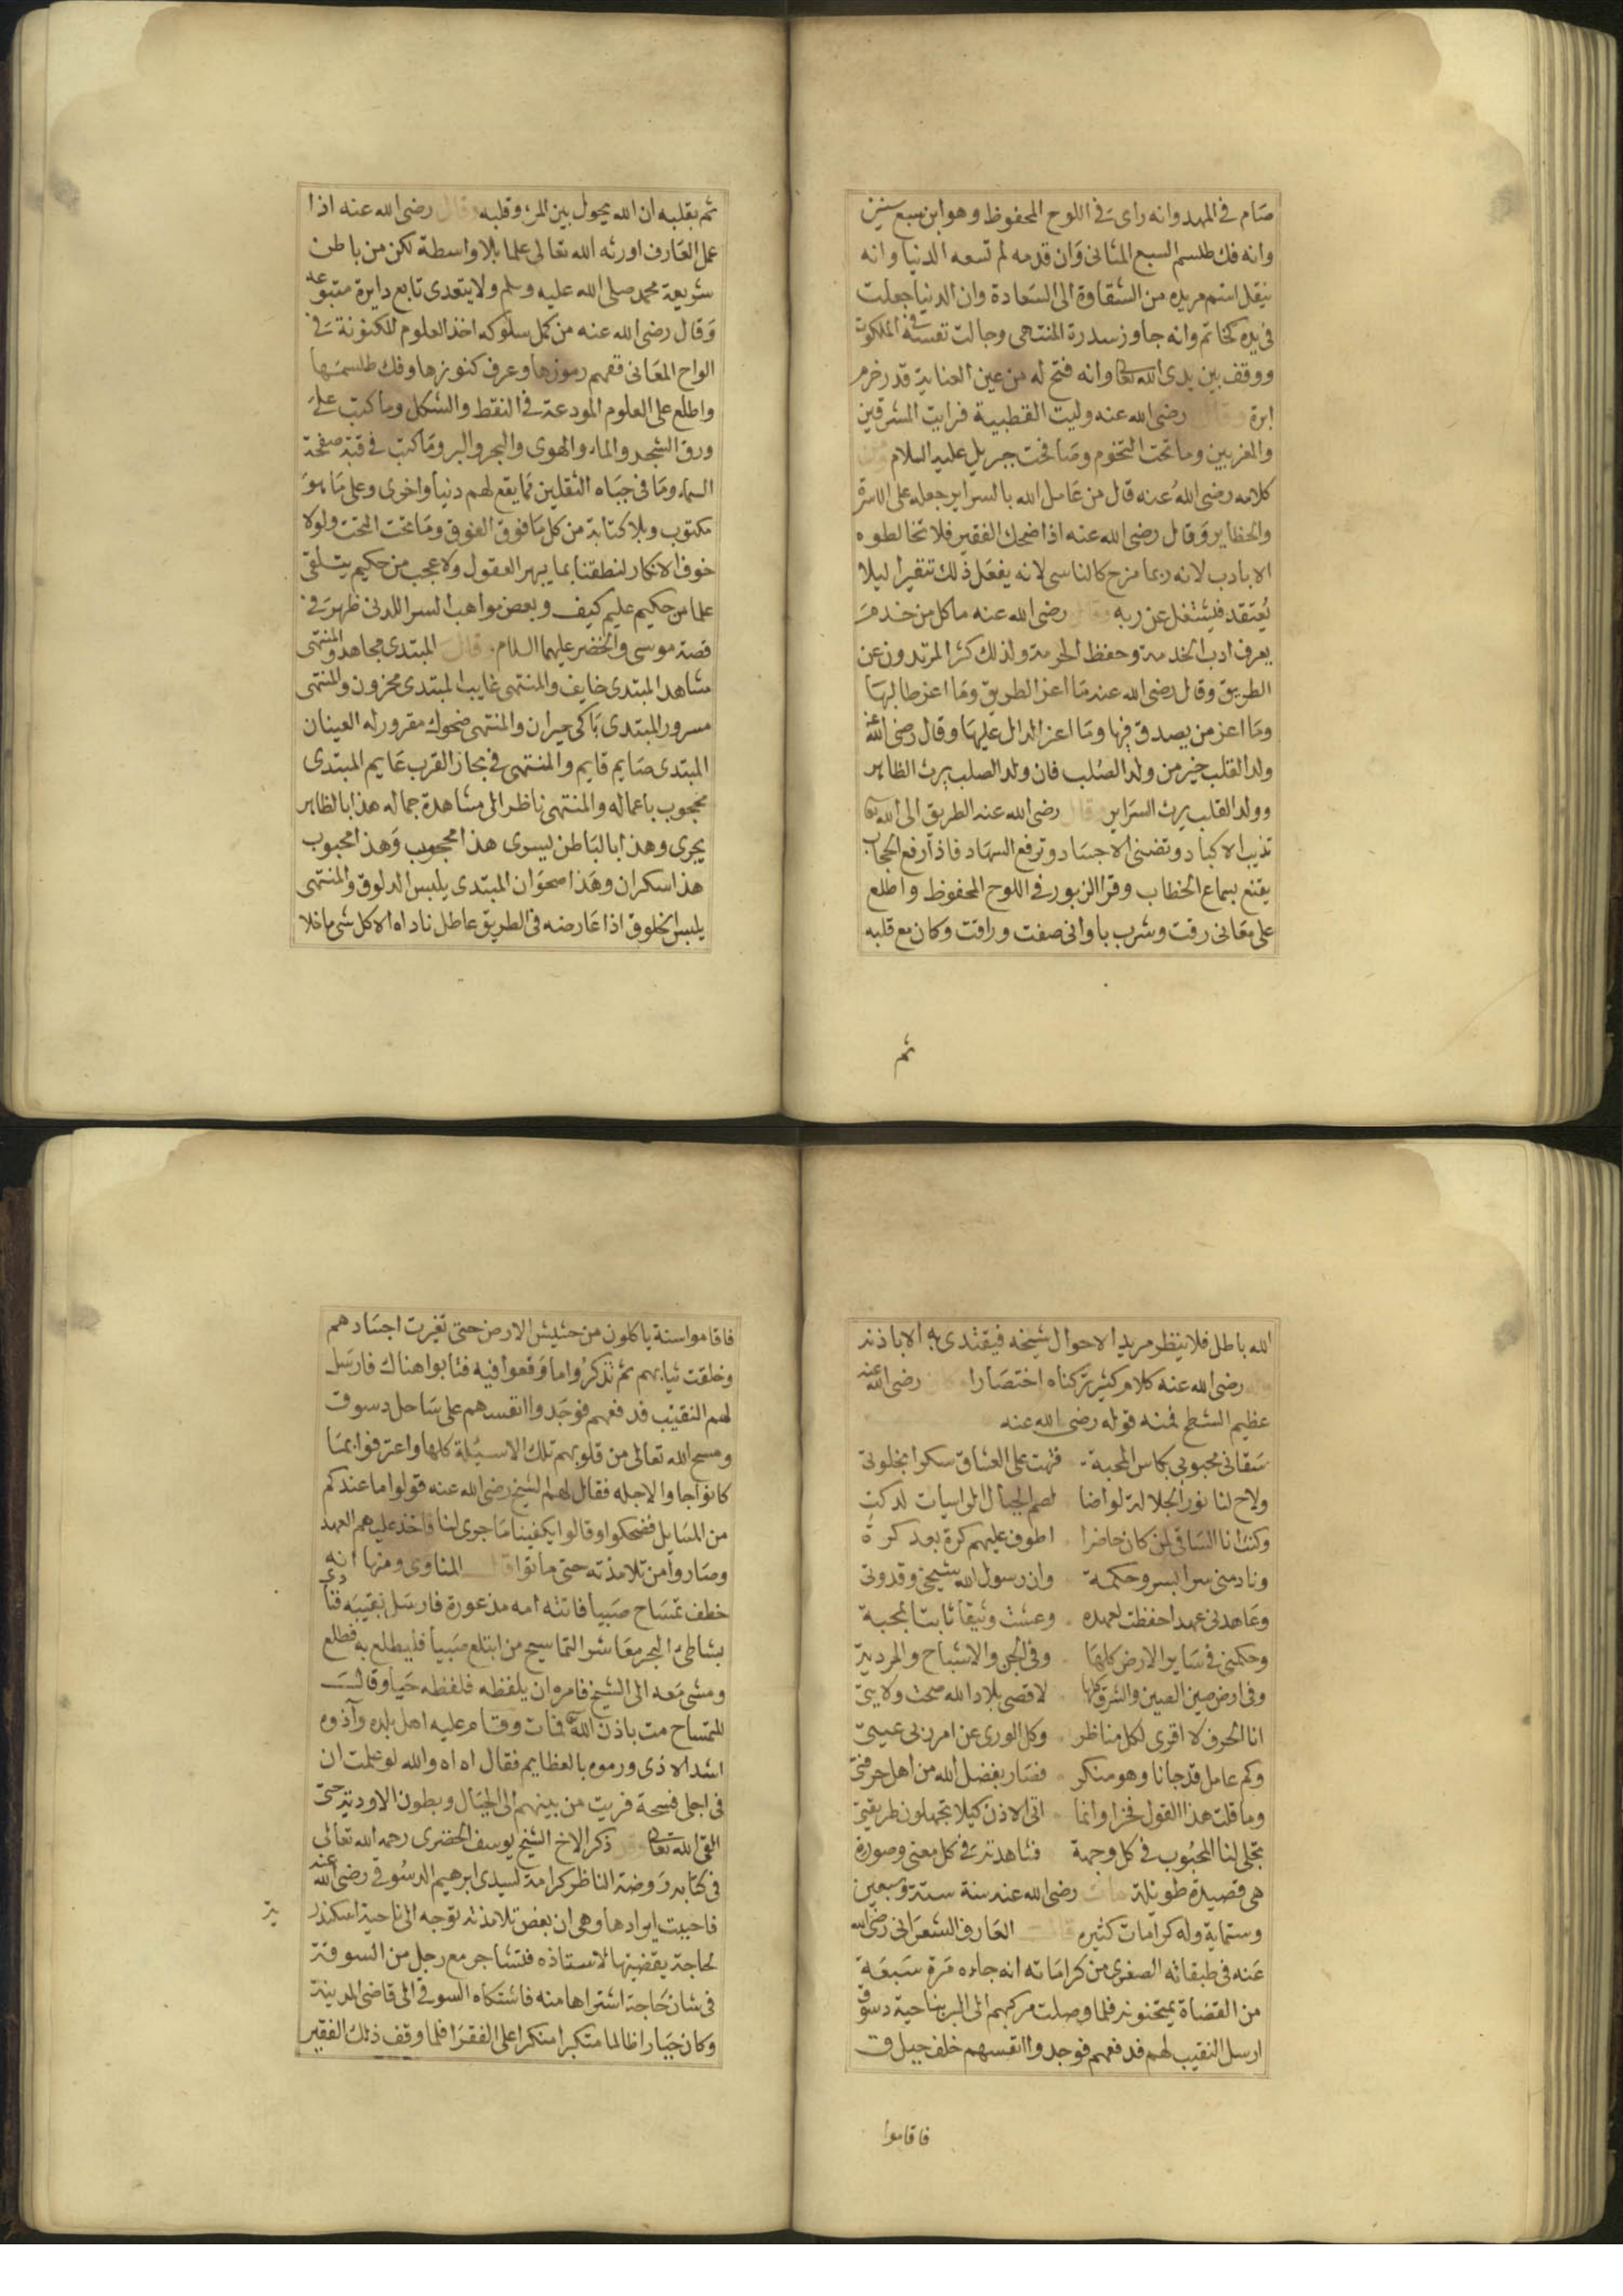 صام في المهد وانه راى في اللوح المحفوظ وهو ابن سبع سنين
وانه فك طلسم السبع المثاني وان قدمه لم تسعه الدنيا وانه
ينقل اسم مريده من الشقاوة الى السعادة وان الدنيا جعلت
في يده كخاتم وانه جاوز سدرة المنتهى وجالت نفسه في الملكوت
ووقف بين يدى الله تعالى وانه فتح له من عين العناية قدر خرم
ابرة وقال رضى الله عنه وليت القطبية فرايت المشرقين
والمغربين وما تحت التخوم وصافحت جبريل عليه السلام ومن
كلامه رضى الله عنه قال من عامل الله بالسراير جعله على الاسرة
والحظاير وقال رضى الله عنه اذا ضحك الفقير فلا تخالطوه
الا بادب لانه ربما مزح كالناس لانه يفعل ذلك تنقيرا ليلا
يعتقد فيشتغل عن ربه وقال رضى الله عنه ما كل من خدم
يعرف ادب الخدمة وحفظ الحرمة ولذلك كثر المرتدون عن
الطريق وقال رضى الله عنه ما اعز الطريق وما اعز طالبها
وما اعز من يصدق فيها وما اعز الدال عليها وقال رضى الله عنه
ولد القلب خير من ولد الصلب فان ولد الصلب يرث الظاهر
وولد القلب يرث السراير وقال رضى الله عنه الطريق الى الله تعالى
تذيب الاكباد وتضنى الاجساد وترفع السهاد فاذا رفع الحجاب
يقنع بسماع الخطاب وقرا الزبور في اللوح المحفوظ واطلع
على معانى رقت وشرب باوانى صفت وراقت وكان مع قلبه
ثم
ثم بقلبه ان الله يحول بين المرء وقلبه وقال رضى الله عنه اذا
عمل العارف اورثه الله تعالى علما بلا واسطة لكن من باطن
شريعة محمد صلى الله عليه وسلم ولا يتعدى تابع دايرة متبوعه
وقال رضى الله عنه من كمل سلوكه اخذ العلوم المكنونة في
الواح المعانى ففهم رموزها وعرف كنوزها وفك طلسمها
واطلع على العلوم المودعة في النقط والشكل وما كتب على
ورق الشجر والماء والهوى والبحر والبر وما كتب في قبة صفحة
السماء وما في جباه الثقلين مما يقع لهم دنيا واخرى وعلى ما هو
مكتوب وبلا كتابة من كل ما فوق الفوق وما تحت التحت ولولا
خوف الانكار لنطقنا بما يبهر العقول ولا عجب من حكيم يتلقى
علما من حكيم عليم كيف وبعض مواهب السر اللدنى ظهر في
قصة موسى والخضر عليهما السلام وقال المبتدى مجاهد والمنتهى
مشاهد المبتدى خايف والمنتهى غايب المبتدى محزون والمنتهى
مسرور المبتدى باكى حيران والمنتهى ضحوك مقرور له العينان
المبتدى صايم قايم والمنتهى في بحار القرب عايم المبتدى
محجوب باعماله والمنتهى ناظر الى مشاهدة جماله هذا بالظاهر
يجرى وهذا بالباطن يسرى هذا محجوب وهذا محبوب
هذا سكران وهذا صحوان المبتدى يلبس الدلوق والمنتهى
يلبس الخلوق اذا عارضه في الطريق عاطل ناداه الا كل شى ما خلا
الله باطل فلا ينظر مريد الاحوال شيخه فيقتدى به الا باذنه
وله رضى الله عنه كلام كثير تركناه اختصارا وكان رضى الله عنه
عظيم الشطح فمنه قوله رضى الله عنه
سقانى محبوبى بكاس المحبة فتهت على العشاق سكرا بخلوتى
ولاح لنا نور الجلالة لو اضا لصم الجبال الراسيات لدكت
وكنت انا الساقى لمن كان حاضرا اطوف عليهم كرة بعد كرة
ونادمنى سرا بسر وحكمة وان رسول الله شيخى وقدوتى
وعاهدنى عهدا حفظت لعهده وعشت وثيقا ثابتا بمحبة
وحكمنى في ساير الارض كلها وفي الجن والاشباح والمردية
وفي ارض صين الصين والشرق كلها لاقصى بلاد الله صحت ولايتى
انا الحرف لا اقرى لكل مناظر وكل الورى عن امر ربى عيتى
وكم عامل قد جانا وهو منكر فصار بفضل الله من اهل حرفتى
وما قلت هذا القول فخرا وانما اتى الاذن كيلا تجهلون طريقتى
تجلى لنا المحبوب في كل وجهة فشاهدته في كل معنى وصورة
هى قصيدة طويلة مات رضى الله عنه سنة ستة وسبعين
وستماية وله كرامات كثيره قال العارف الشعرانى رضى الله
عنه في طبقاته الصغرى من كراماته انه جاءه مرة سبعة
من القضاة يمتحنونه فلما وصلت مركبهم الى البر بناحية دسوق
ارسل النقيب لهم فدفعهم فوجدوا انفسهم خلف جبل ق
فاقاموا
فاقاموا سنة ياكلون من حشيش الارض حتى تغيرت اجسادهم
وخلقت ثيابهم ثم تذكروا ما وقعوا فيه فتابوا هناك فارسل
لهم النقيب فدفعهم فوجدوا انفسهم على ساحل دسوق
ومسح الله تعالى من قلوبهم تلك الاسيلة كلها واعترفوا بما
كانوا جاوا لاجله فقال لهم الشيخ رضى الله عنه قولوا ما عندكم
من المسايل فضحكوا وقالوا يكفينا ما جرى لنا فاخذ عليهم العهد
وصاروا من تلامذته حتى ماتوا قال المناوى ومنها انه
خطف تمساح صبيا فاتته امه مذعورة فارسل نقيبه فنادى
بشاطئ البحر معاشر التماسيح من ابتلع صبيا فليطلع به فطلع
ومشى معه الى الشيخ فامره ان يلفظه فلفظه حيا وقال
للتمساح مت باذن الله فمات وقام عليه اهل بلده وآذوه
اشد الاذى ورموه بالعظايم فقال اه اه والله لو علمت ان
في اجلى فسحة فريت من بينهم الى الجبال وبطون الاودية حتى
القى الله تعالى وقد ذكر الاخ الشيخ يوسف الخضرى رحمه الله تعالى
في كتابه روضة الناظر كرامة لسيدى ابرهيم الدسوقى رضى الله عنه
فاحببت ايرادها وهى ان بعض تلامذته توجه الى ناحية اسكندر
ية
لحاجة يقضيها لاستاذه فتشاجر مع رجل من السوقة
في شان حاجة اشتراها منه فاشتكاه السوقى الى قاضى المدينة
وكان جبارا ظالما متكبرا منكرا على الفقرا فلما وقف ذلك الفقير